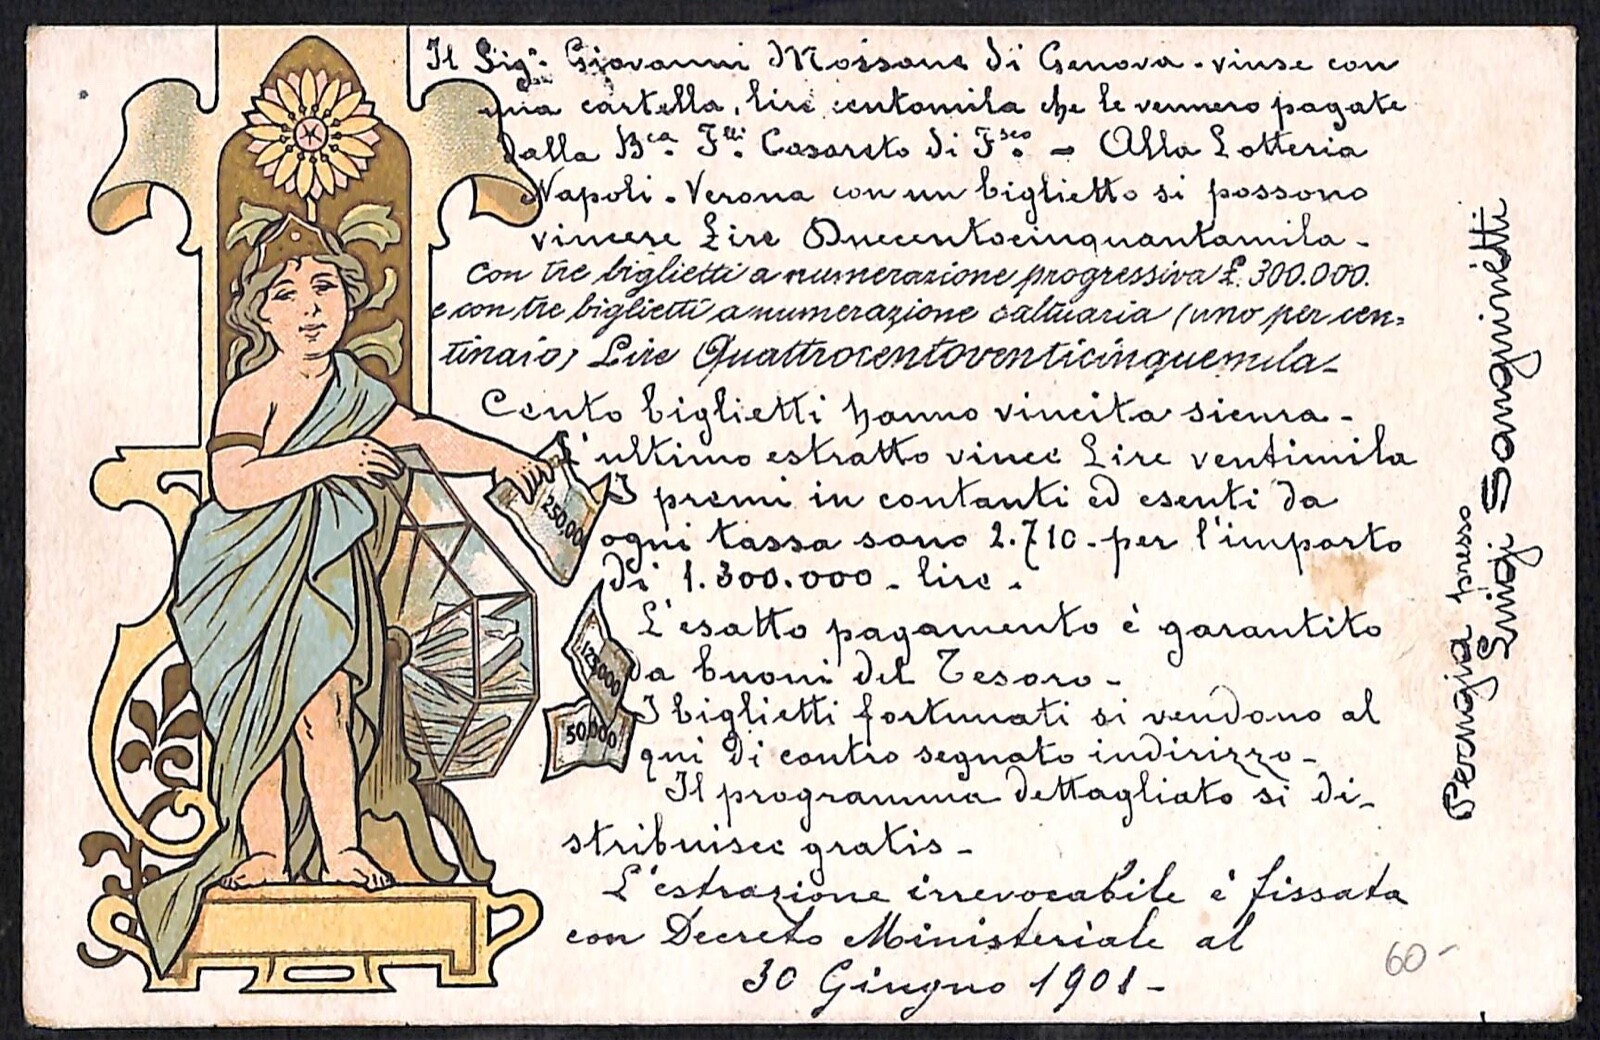 Il Sigr. Giovanni Mossone di Genova - vinse con
una cartella, lire centomila che le vennero pagate
dalla Bca. Flli. Casareto di Fsco. - Alla Lotteria
Napoli - Verona con un biglietto si possono
vincere Lire Duecentocinquantamila -
con tre biglietti a numerazione progressiva £. 300.000.
e con tre biglietti a numerazione saltuaria (uno per cen=
tinaio) Lire Quattrocentoventicinquemila -
Cento biglietti hanno vincita sicura -
L'ultimo estratto vince Lire ventimila
I premi in contanti ed esenti da
ogni tassa sono 2.710 - per l'importo
di 1.300.000 - lire -
L'esatto pagamento è garantito
da buoni del Tesoro -
I biglietti fortunati si vendono al
qui di contro segnato indirizzo -
Il programma dettagliato si di-
stribuisce gratis -
L'estrazione irrevocabile è fissata
con Decreto Ministeriale al
30 Giugno 1901 -
Perugia presso
Luigi Sonagninetti
250.00
125000
50,000
60-